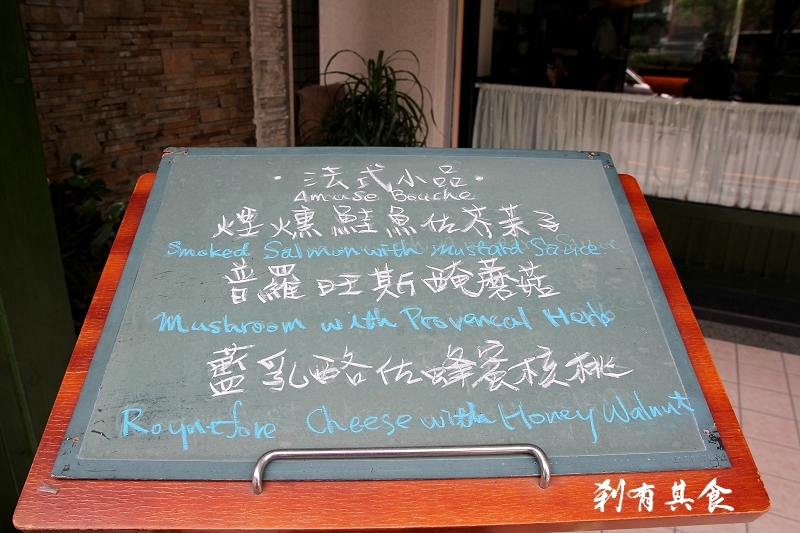 ·法式小品·
Amuse Bouche
煙燻鮭魚佐芥茉子
Smoked Salmon with mustard Sauce
普羅旺斯醃蘑菇
Mushroom with Provencal Herb
藍乳酪佐蜂蜜核桃
Cheese with Honey Walnut
剎有其食